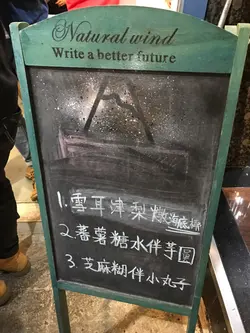 Natural wind
Write a better future
1. 雪耳津梨燉海底椰
2. 蕃薯糖水伴芋圓
3. 芝麻糊伴小丸子